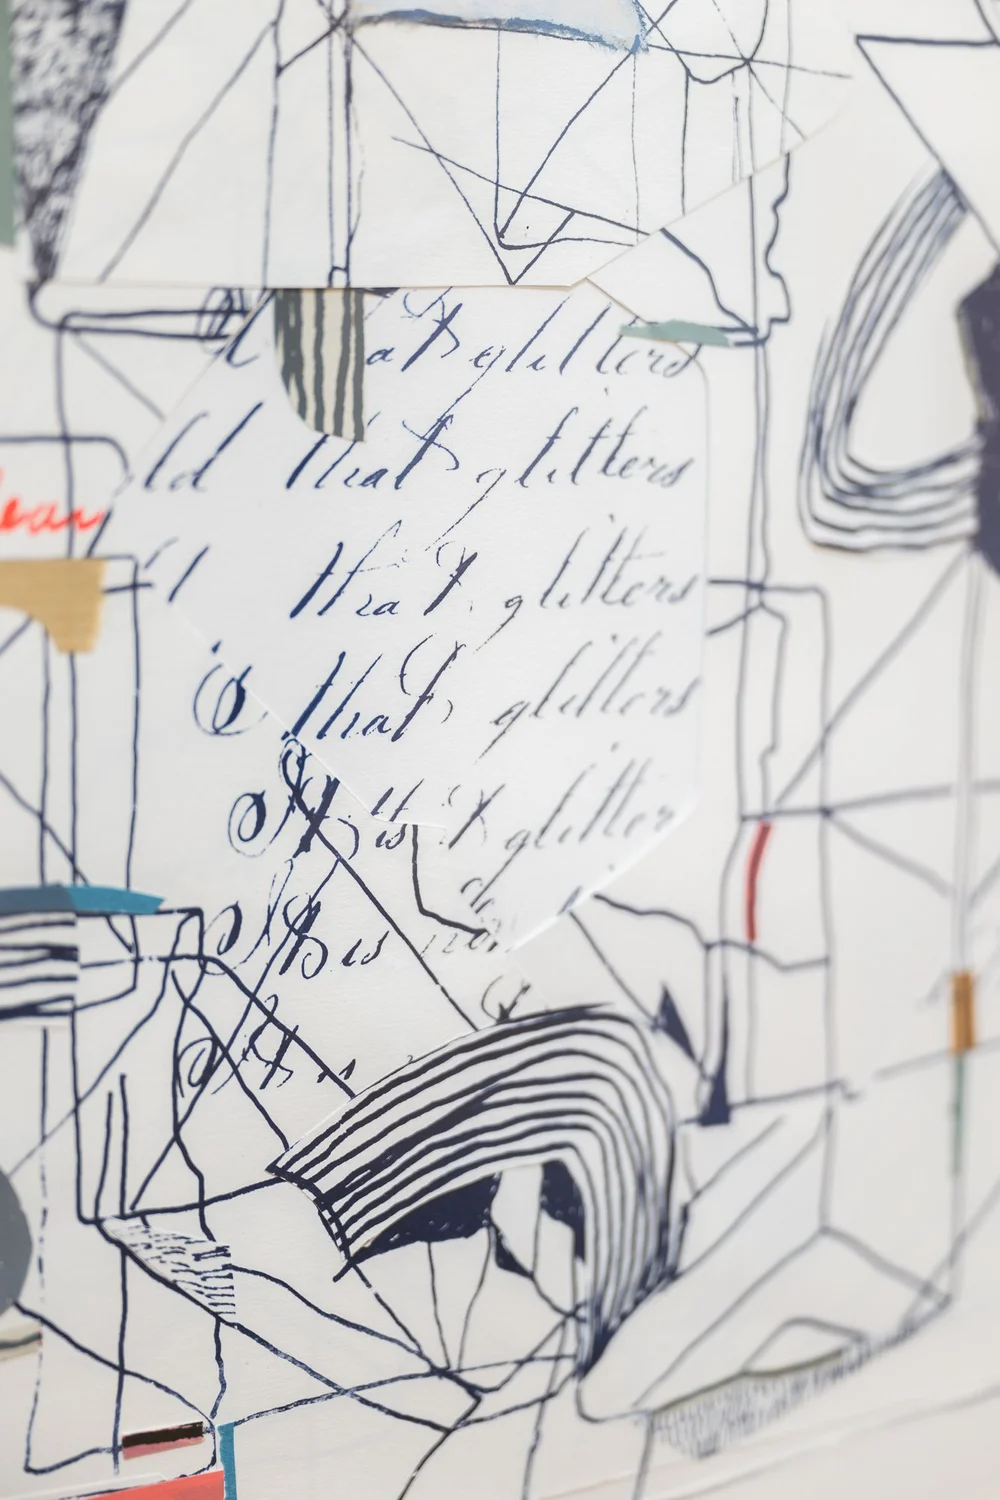 that glitters
ld that glitters
that glitters
that glitters
It is t glitter
It is not
It is
ear